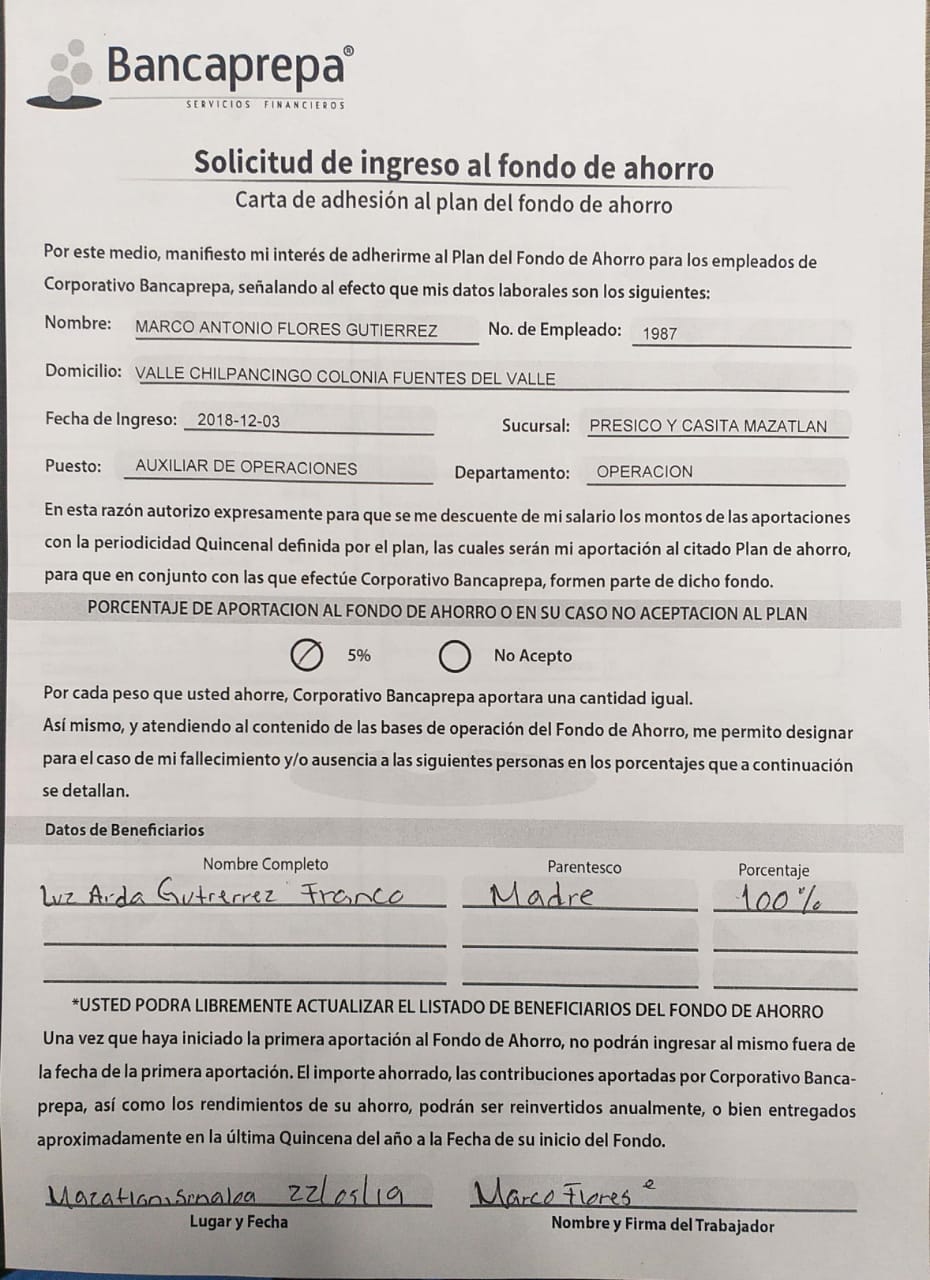 Bancaprepa®
SERVICIOS FINANCIEROS
Solicitud de ingreso al fondo de ahorro
Carta de adhesión al plan del fondo de ahorro
Por este medio, manifiesto mi interés de adherirme al Plan del Fondo de Ahorro para los empleados de
Corporativo Bancaprepa, señalando al efecto que mis datos laborales son los siguientes:
Nombre: MARCO ANTONIO FLORES GUTIERREZ No. de Empleado: 1987
Domicilio: VALLE CHILPANCINGO COLONIA FUENTES DEL VALLE
Fecha de Ingreso: 2018-12-03 Sucursal: PRESICO Y CASITA MAZATLAN
Puesto: AUXILIAR DE OPERACIONES Departamento: OPERACION
En esta razón autorizo expresamente para que se me descuente de mi salario los montos de las aportaciones
con la periodicidad Quincenal definida por el plan, las cuales serán mi aportación al citado Plan de ahorro,
para que en conjunto con las que efectúe Corporativo Bancaprepa, formen parte de dicho fondo.
PORCENTAJE DE APORTACION AL FONDO DE AHORRO O EN SU CASO NO ACEPTACION AL PLAN
5% No Acepto
Por cada peso que usted ahorre, Corporativo Bancaprepa aportara una cantidad igual.
Así mismo, y atendiendo al contenido de las bases de operación del Fondo de Ahorro, me permito designar
para el caso de mi fallecimiento y/o ausencia a las siguientes personas en los porcentajes que a continuación
se detallan.
Datos de Beneficiarios
Nombre Completo Parentesco Porcentaje
Luz Aida Gutierrez Franco Madre 100%
*USTED PODRA LIBREMENTE ACTUALIZAR EL LISTADO DE BENEFICIARIOS DEL FONDO DE AHORRO
Una vez que haya iniciado la primera aportación al Fondo de Ahorro, no podrán ingresar al mismo fuera de
la fecha de la primera aportación. El importe ahorrado, las contribuciones aportadas por Corporativo Banca-
prepa, así como los rendimientos de su ahorro, podrán ser reinvertidos anualmente, o bien entregados
aproximadamente en la última Quincena del año a la Fecha de su inicio del Fondo.
Mazatlan, Sinaloa 22/05/19 Marco Flores
Lugar y Fecha Nombre y Firma del Trabajador